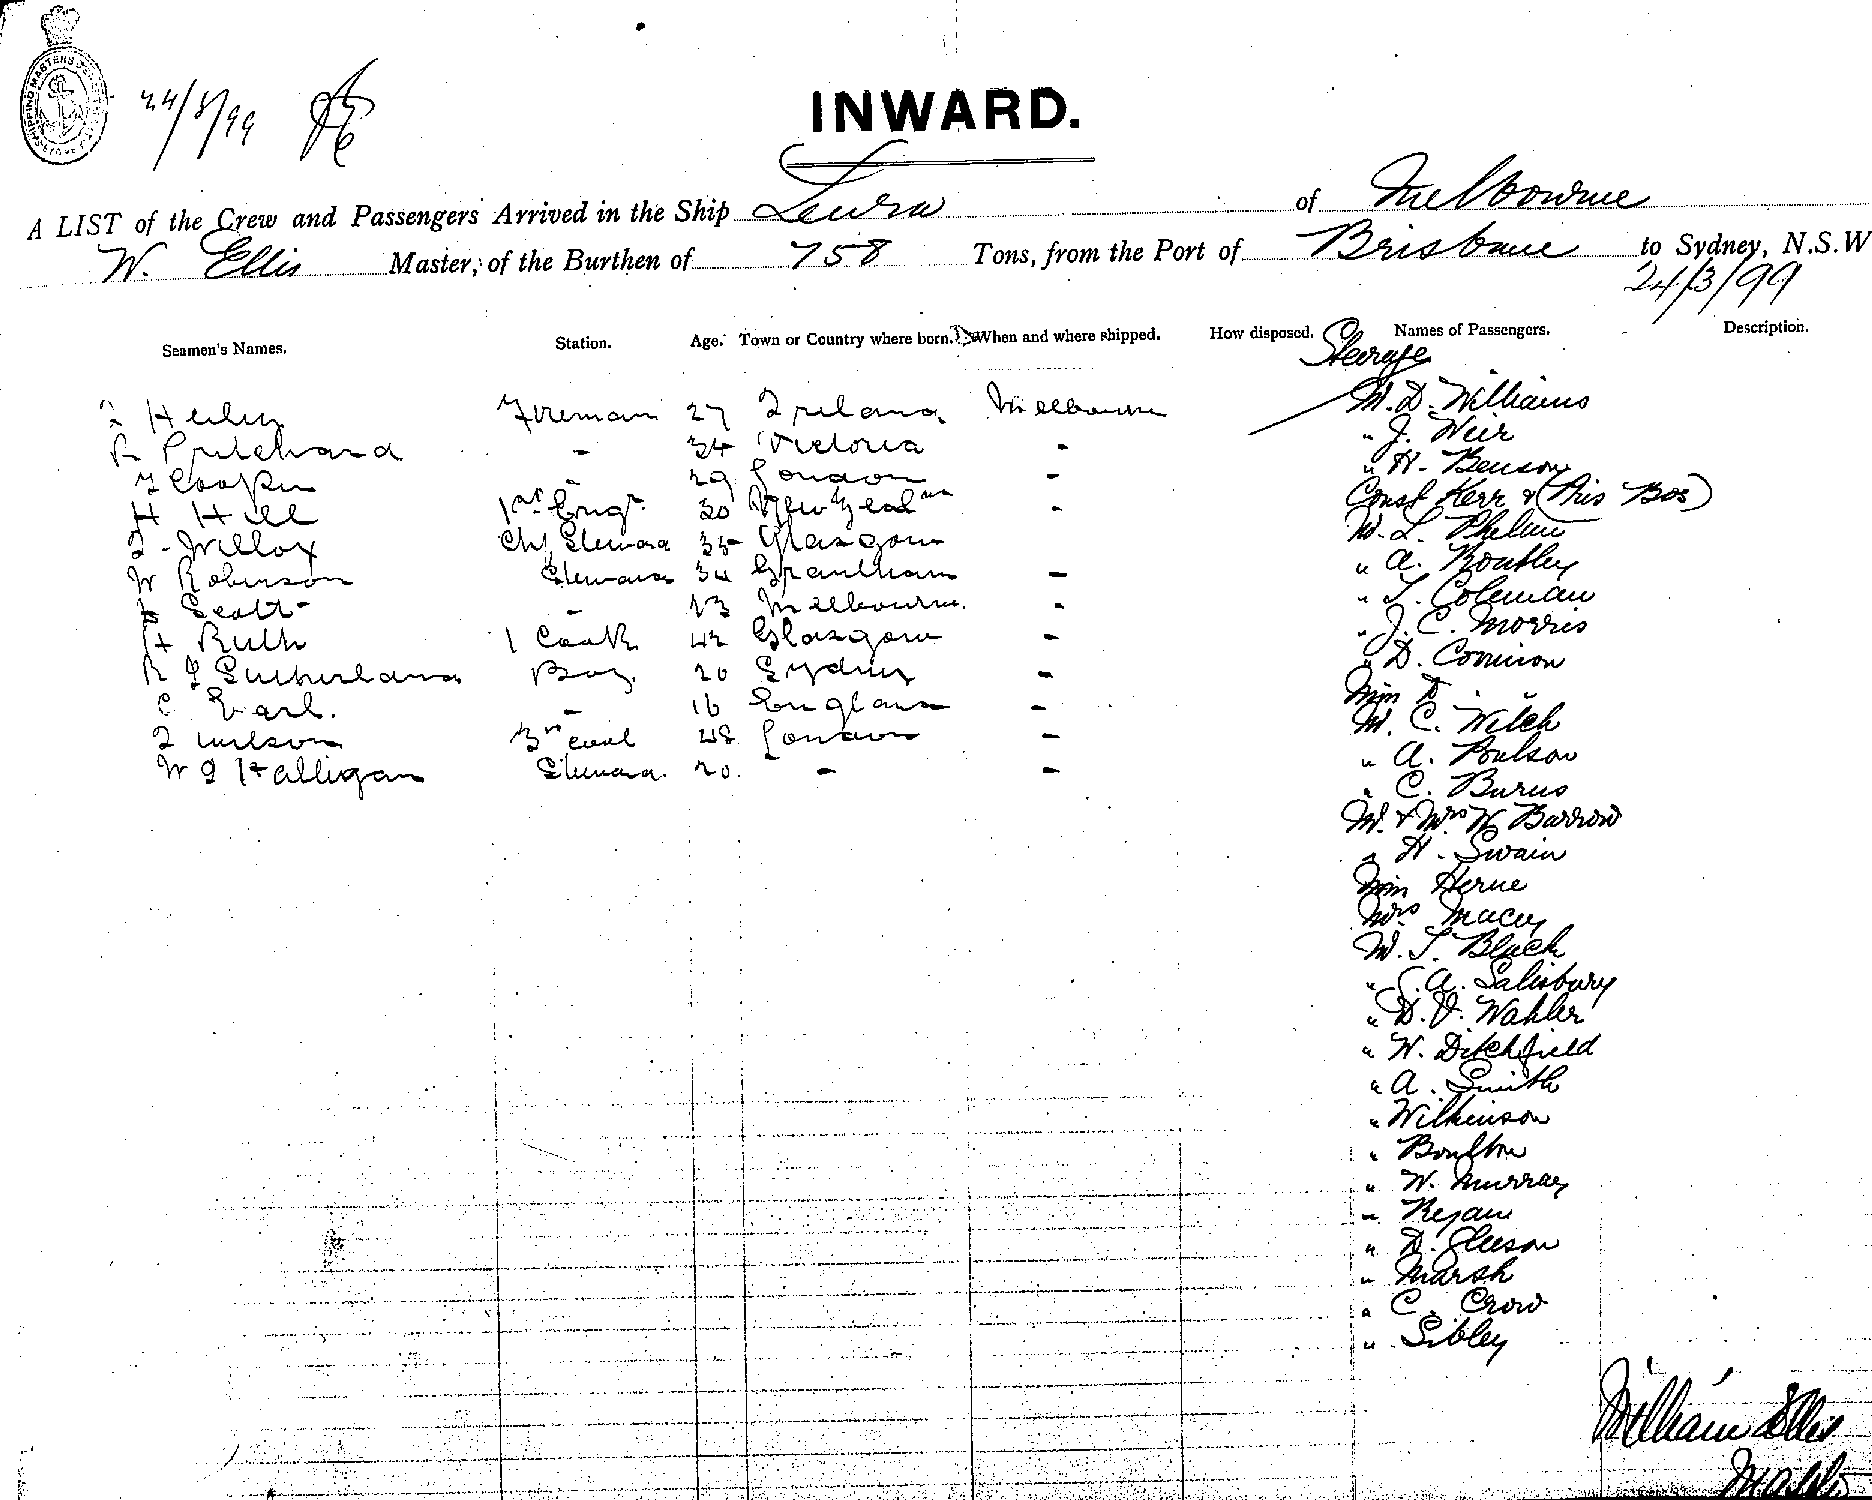 24/3/99
INWARD.
A LIST of the Crew and Passengers Arrived in the Ship Leura of Melbourne
W. Ellis Master, of the Burthen of 758 Tons, from the Port of Brisbane to Sydney, N.S.W
24/3/99
Seamen's Names. Station. Age. Town or Country where born. When and where shipped. How disposed. Names of Passengers. Description.
Steerage
Fireman 27 Ireland Melbourne M. D. Williams
R Pritchard - 34 Victoria - " J. Weir
Cooper - 29 London - " H. Benson
H Hill 1st Engr 30 New Zealan - Const Kerr & (Pris Bos)
Willox Chf Steward 35 Glasgow M. L. Phelan
W Robinson Steward 34 Grantham - " A. Routley
Scott - 23 Melbourne. - " T. Coleman
H Ruth 1 Cook 42 Glasgow - " J. C. Morris
R J Sutherland Boy. 20 Sydney - " D. Connon
C Earl. - 16 England - Miss
J Wilson 3rd cook 28 London - M. C. Welch
W J Halligan Steward. 20. - - " A. Poulson
" C. Burns
M. & Mrs W Barrow
" H. Swain
Miss Herne
Mrs Macey
M. T. Black
" A. Salisbury
" D. V. Wahler
" W. Ditchfield
" A. Smith
" Wilkinson
" Boulton
" W. Murray
" Regan
" D. Gleeson
" Marsh
" C. Crow
" Sibley
William Ellis
Master